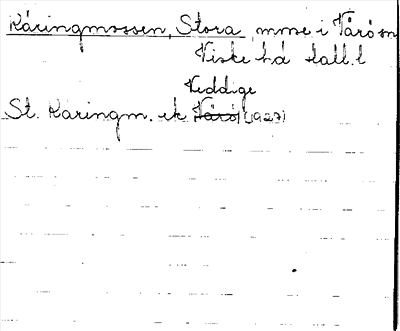 Käringmossen, Stora, mme i Värö sn
Viske hd Hall. l
Veddige
St. Käringm. ek Värö (1927)